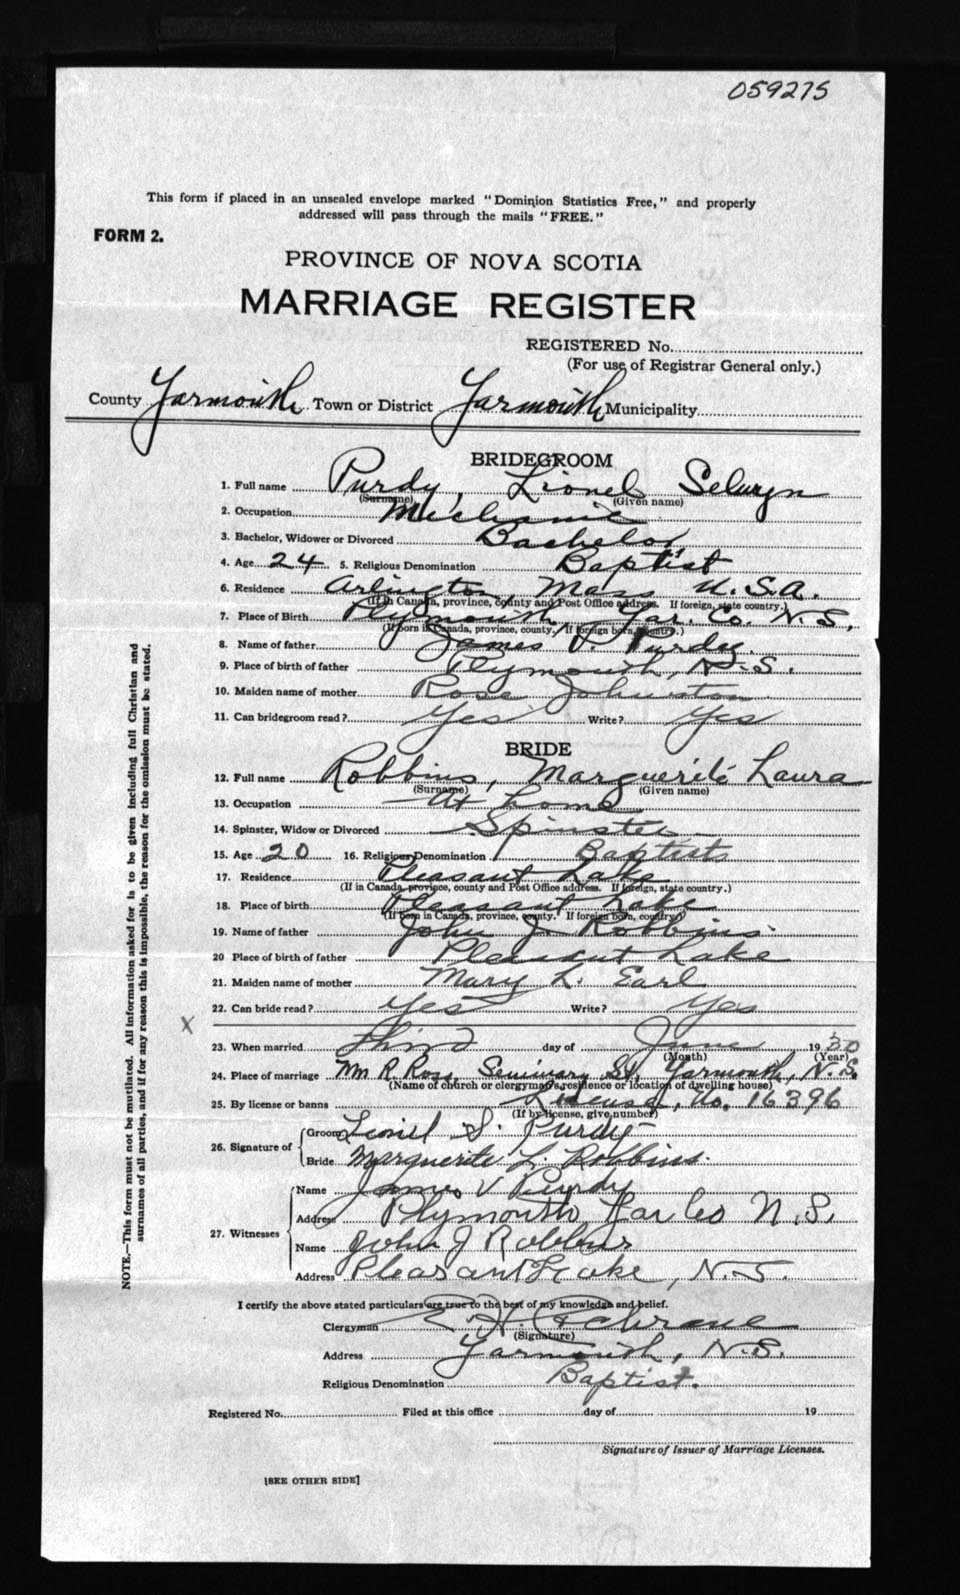 059275
This form if placed in an unsealed envelope marked "Dominion Statistics Free," and properly
addressed will pass through the mails "FREE."
FORM 2.
PROVINCE OF NOVA SCOTIA
MARRIAGE REGISTER
REGISTERED No.
(For use of Registrar General only.)
County Yarmouth Town or District Yarmouth Municipality
BRIDEGROOM
1. Full name Purdy, Lionel Selwyn
(Surname) (Given name)
2. Occupation Mechanic
3. Bachelor, Widower or Divorced Bachelor
4. Age 24 5. Religious Denomination Baptist
6. Residence Arlington, Mass U.S.A.
(If in Canada, province, county and Post Office address. If foreign, state country.)
7. Place of Birth Plymouth Yar. Co. N.S.
(If born in Canada, province, county. If foreign born, country.)
8. Name of father James V. Purdy.
9. Place of birth of father Plymouth, N.S.
10. Maiden name of mother Rose Johnston
11. Can bridegroom read? Yes Write? Yes
BRIDE
12. Full name Robbins, Marguerite Laura
(Surname) (Given name)
13. Occupation At home
14. Spinster, Widow or Divorced Spinster
15. Age 20 16. Religious Denomination Baptists
17. Residence Pleasant Lake
(If in Canada, province, county and Post Office address. If foreign, state country.)
18. Place of birth Pleasant Lake
(If born in Canada, province, county. If foreign born, country.)
19. Name of father John J. Robbins
20 Place of birth of father Pleasant Lake
21. Maiden name of mother Mary L. Earl
22. Can bride read? Yes Write? Yes
X
23. When married third day of June 1930
(Month) (Year)
24. Place of marriage Wm R. Ross, Seminary St, Yarmouth, N.S.
(Name of church or clergyman's residence or location of dwelling house)
25. By license or banns License, No. 16396
(If by license, give number)
26. Signature of Groom Lionel S. Purdy
Bride Marguerite L. Robbins.
27. Witnesses Name James V Purdy
Address Plymouth, Yar Co N.S.
Name John J Robbins
Address Pleasant Lake, N.S.
I certify the above stated particulars are true to the best of my knowledge and belief.
Clergyman
(Signature)
Address Yarmouth, N.S.
Religious Denomination Baptist.
Registered No. Filed at this office day of 19
Signature of Issuer of Marriage Licenses.
[SEE OTHER SIDE]
NOTE.—This form must not be mutilated. All information asked for is to be given including full Christian and
surnames of all parties, and if for any reason this is impossible, the reason for the omission must be stated.